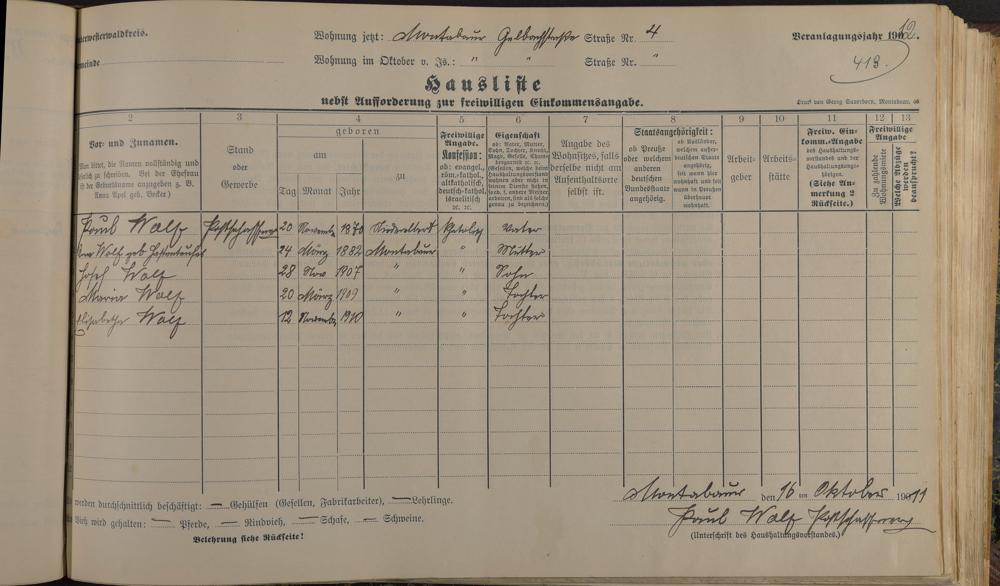 terwesterwaldkreis. Wohnung jetzt: Montabaur Gelbachstraße Straße Nr. 4 Veranlagungsjahr 1912.
meinde Wohnung im Oktober v. Js.: " " Straße Nr. " 413.
Hausliste
nebst Aufforderung zur freiwilligen Einkommensangabe.
Druck von Georg Sauerborn, Montabaur.
2 3 4 5 6 7 8 9 10 11 12 13
Vor- und Zunamen.
Man bittet, die Namen vollständig und
deutlich zu schreiben. Bei der Ehefrau
ist der Geburtsname anzugeben z. B.
Anna Apel geb. Becker.)
Stand
oder
Gewerbe
geboren
am
zu
Tag Monat Jahr
Freiwillige
Angabe.
Konfession:
ob: evangel.,
röm.-kathol.,
altkatholisch,
deutsch-kathol.,
israelitisch
2c. 2c.
Eigenschaft
ob: Vater, Mutter,
Sohn, Tochter, Knecht,
Magd, Geselle,
Angabe des
Wohnsitzes, falls
derselbe nicht am
Aufenthaltsorte
selbst ist.
Staatsangehörigkeit:
ob Preuße
oder welchem
anderen
deutschen
Bundesstaate
angehörig.
ob Ausländer,
Arbeit-
geber
Arbeits-
stätte
Freiw. Ein-
komm.-Angabe
des Haushaltungs-
vorstandes und der
Haushaltungsange-
hörigen.
(Siehe An-
merkung 2
Rückseite.)
Freiwillige
Angabe
Zu zahlende
Wohnungsmiete
Welche Abzüge
werden
beansprucht?
Paul Wolf 20 1870 Katholisch Vater
Wolf geb. 24 März 1882 Montabaur " Mutter
Josef Wolf 28 Nov 1907 " " Sohn
Maria Wolf 20 März 1909 " " Tochter
Elisabetha Wolf 12 November 1910 " " Tochter
werden durchschnittlich beschäftigt: — Gehülfen (Gesellen, Fabrikarbeiter), — Lehrlinge.
Vieh wird gehalten: — Pferde, — Rindvieh, — Schafe, — Schweine.
Belehrung siehe Rückseite!
Montabaur den 16 ten Oktober 1911
Paul Wolf
(Unterschrift des Haushaltungsvorstandes.)